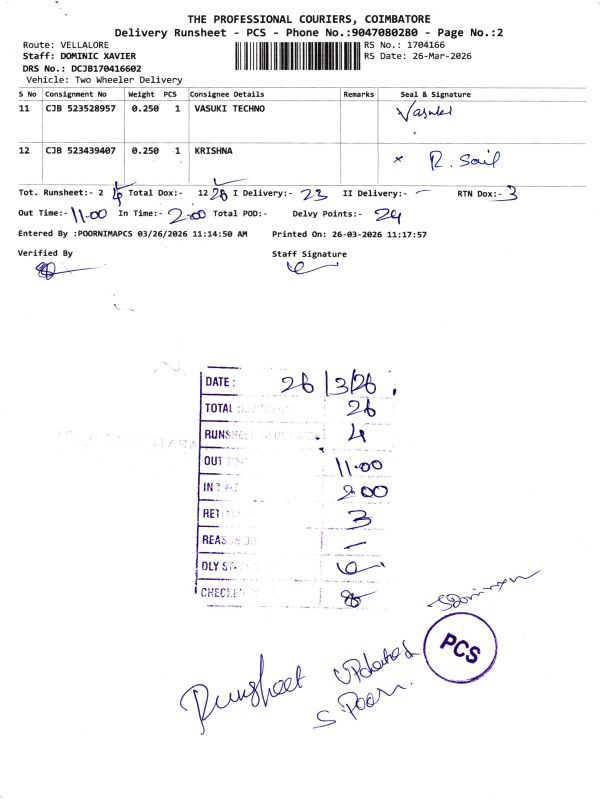 THE PROFESSIONAL COURIERS, COIMBATORE
Delivery Runsheet - PCS - Phone No.:9047080280 - Page No.:2
Route: VELLALORE RS No.: 1704166
Staff: DOMINIC XAVIER RS Date: 26-Mar-2026
DRS No.: DCJB170416602
Vehicle: Two Wheeler Delivery
S No Consignment No Weight PCS Consignee Details Remarks Seal & Signature
11 CJB 523528957 0.250 1 VASUKI TECHNO Vasuki
12 CJB 523439407 0.250 1 KRISHNA x R. Sail
Tot. Runsheet:- 2 4 Total Dox:- 12 26 I Delivery:- 23 II Delivery:- - RTN Dox:- 3
Out Time:- 11.00 In Time:- 2.00 Total POD:- Delvy Points:- 24
Entered By :POORNIMAPCS 03/26/2026 11:14:50 AM Printed On: 26-03-2026 11:17:57
Verified By Staff Signature
DATE : 26/3/26
TOTAL 26
RUNSHEET 4
OUT 11.00
IN 2.00
RET 3
REAS -
DLY
CHECKE
PCS
Runsheet Updated
S. Poor